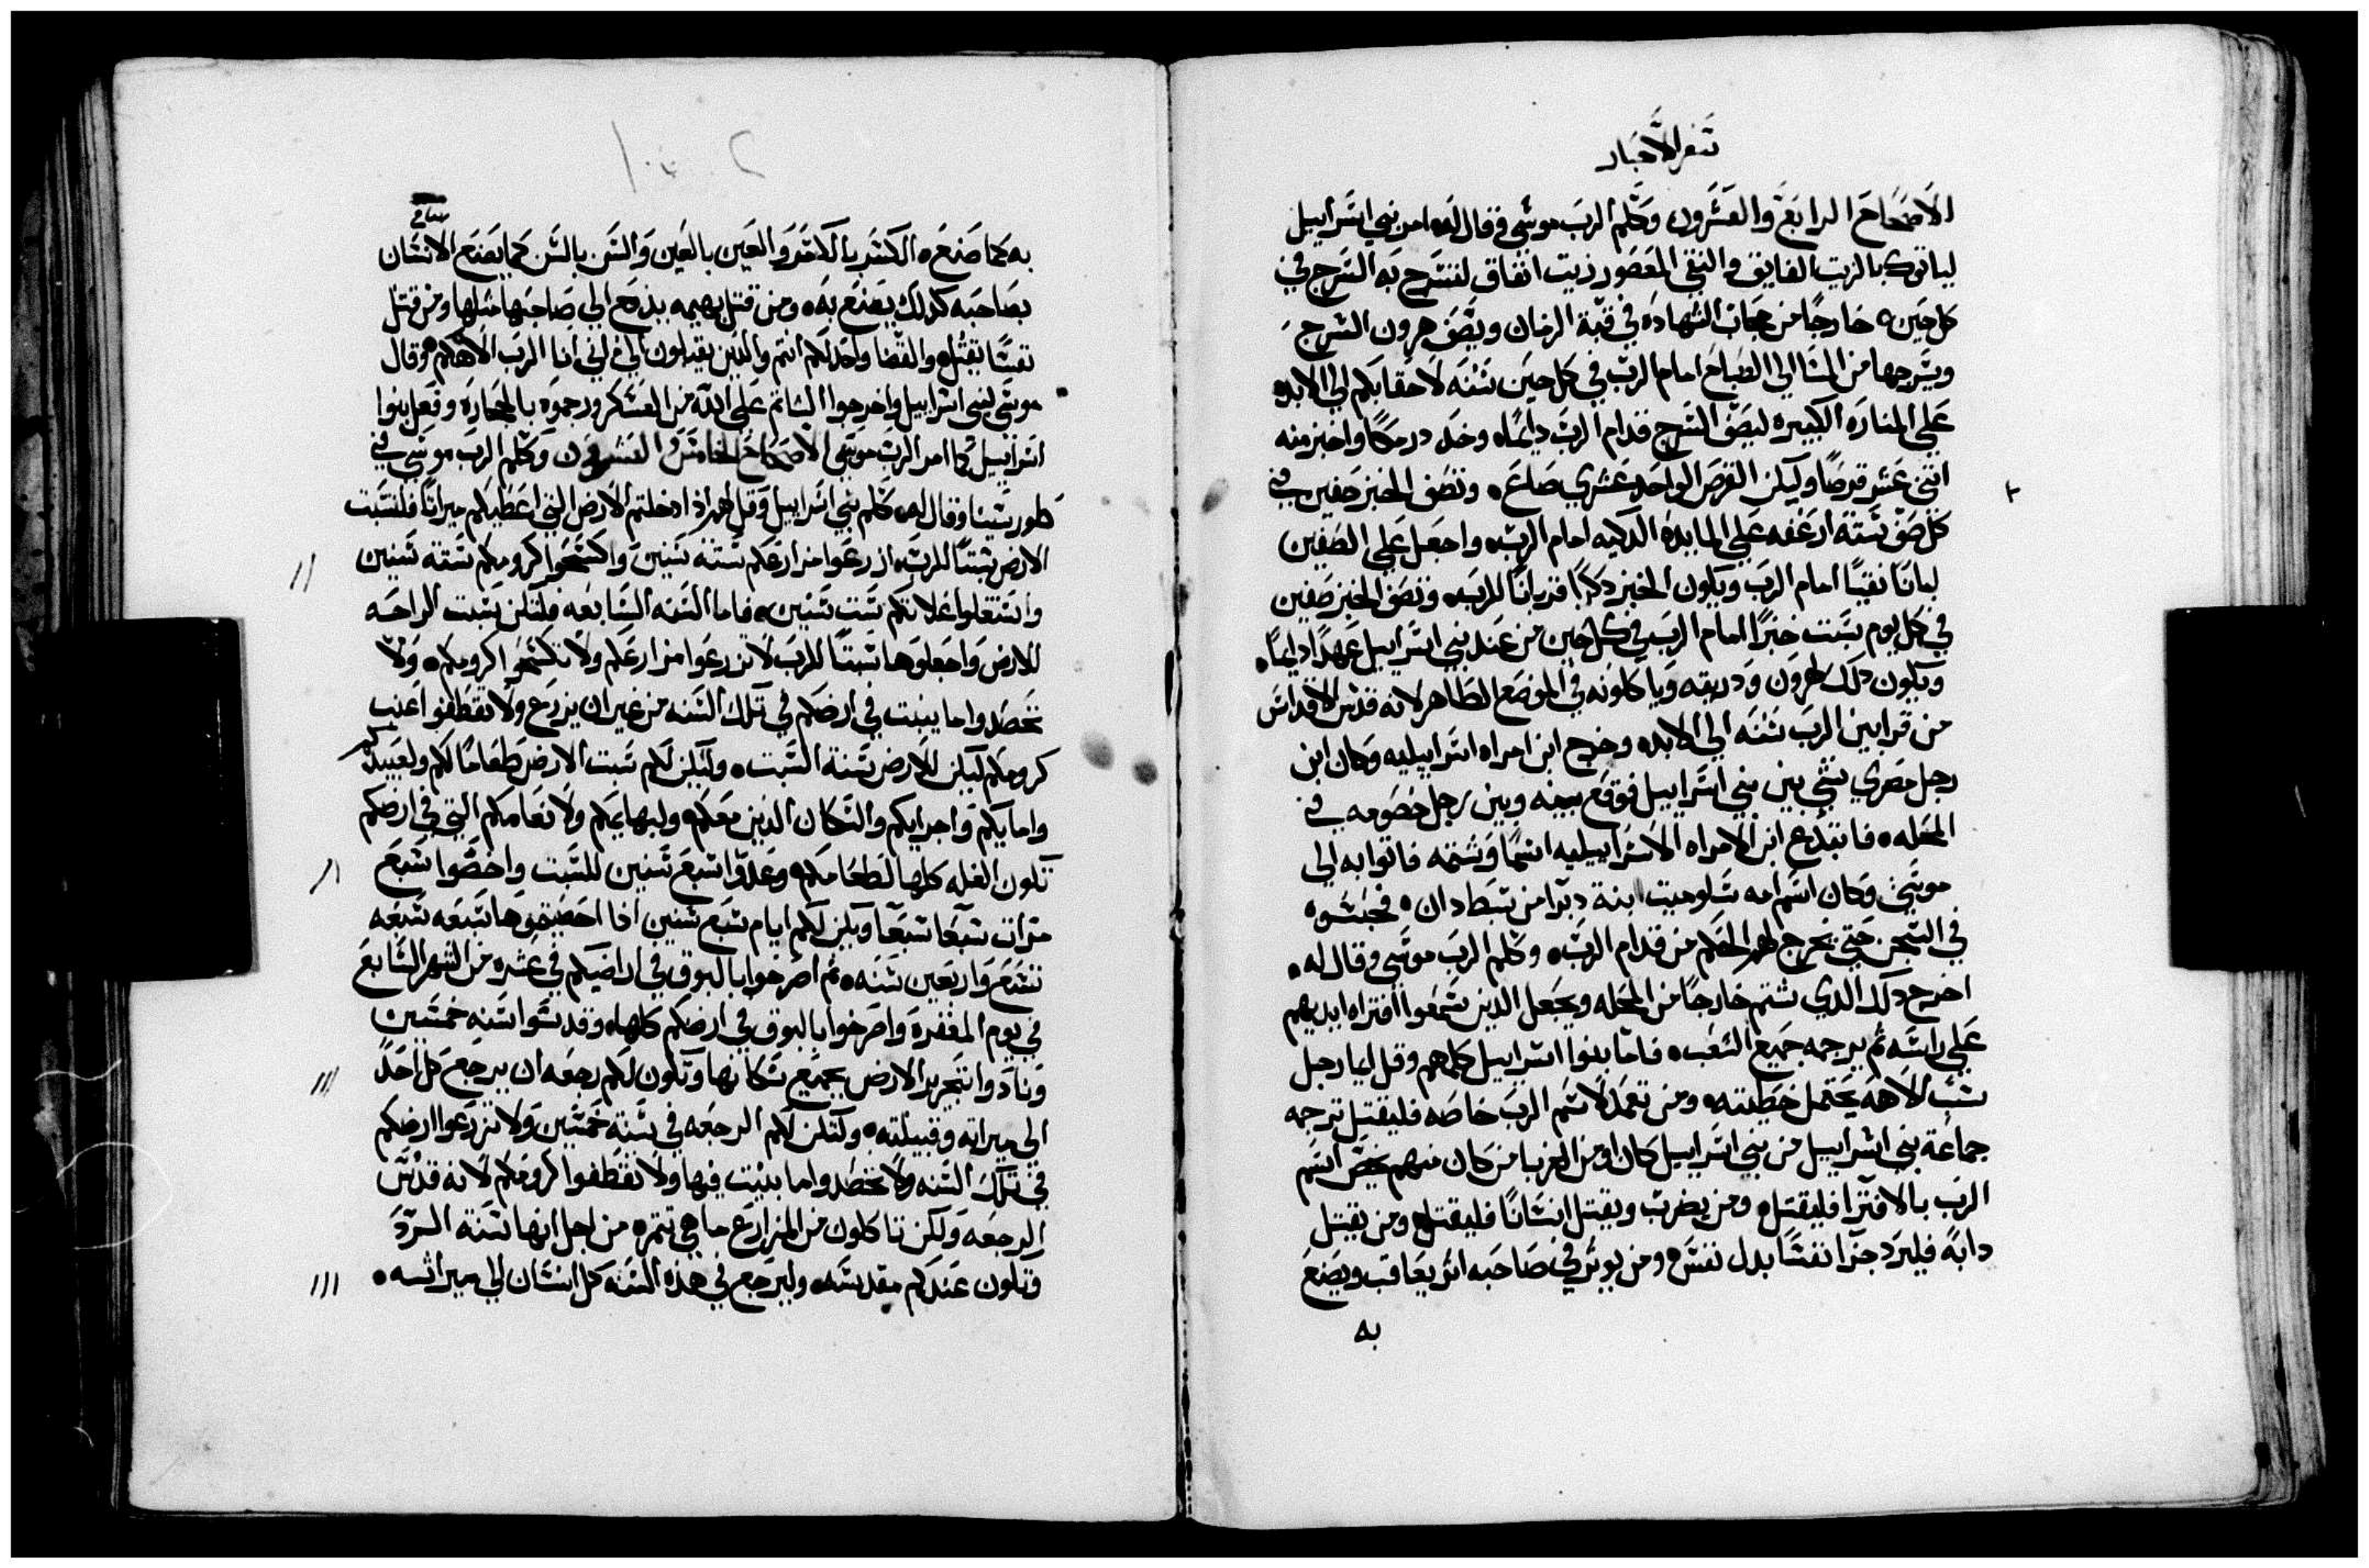 سفر الاحبار
الاصحاح الرابع والعشرون وكلم الرب موسى وقال له امر بني اسراييل
لياتوك بالزيت الفايق والنقي المعصور زيت انفاق لتسرج به السرج في
كل حين خارجًا من حجاب الشهاده في قبة الزمان ويصف هرون السرج
ويسرجها من المسا الي الصباح امام الرب في كل حين سنه لاحقابكم الي الابد
علي المناره الكبيره ليصف السرج قدام الرب دايمًا وخذ درمكًا واخبز منه
اثني عشر قرصًا وليكن القرص الواحد عشري صاع وتصف الخبز صفين في
كل صف ستة ارغفه علي المايده الدكيه امام الرب واجعل علي الصفين
لبانًا نقيًا امام الرب ويكون الخبز دكرًا قربانًا للرب وتصف الخبز صفين
في كل يوم سبت خبزًا امام الرب في كل حين من عند بني اسراييل عهدًا دايمًا
ويكون دلك لهرون ودريته وياكلونه في الموضع الطاهر لانه قدس الاقداس
من قرابين الرب سنه الي الابد وخرج ابن امراه اسراييليه وكان ابن
رجل مصري نشي بين بني اسراييل فوقع بينه وبين رجل خصومه في
المحله فابتدع ابن الامراه الاسراييليه اسمًا وشتمه فاتوا به الي
موسي وكان اسم امه سلوميت ابنة دبرا من سبط دان فحبسوه
في السجن حتي يخرج لهم الحكم من قدام الرب وكلم الرب موسي وقال له
اخرج دلك الدي شتم خارجًا من المحله ويجعل الدين سمعوا افتراه ايديهم
علي راسه ثم يرجمه جميع الشعب فاما بنوا اسراييل كلهم وقل ايما رجل
سب الاهه يحتمل خطيته ومن تعمد لاسم الرب خاصه فليقتل ترجمه
جماعة بني اسراييل من بني اسراييل كان او من الغربا من كان منهم اسم
الرب بالافترا فليقتل ومن يضرب ويقتل انسانًا فليقتل ومن يقتل
دابه فليرد جزا نفسًا بدل نفس ومن يوثر في صاحبه اثر يعاقب ويصنع
به
به كما صنع الكسر بالكسر والعين بالعين والسن بالسن كما يصنع الانسان
بصاحبه كدلك يصنع به ومن قتل بهيمه يدفع الي صاحبها مثلها ومن قتل
نفسًا يقتل والقضا واحد لكم انتم والدين يقبلون الي اني انا الرب الاهكم وقال
موسي لبني اسراييل واخرجوا الشاتم علي الله من العسكر ورجموه بالحجاره وفعل بنوا
اسراييل كما امر الرب موسي الاصحاح الخامس والعشرون وكلم الرب موسي في
طور سينا وقال له كلم بني اسراييل وقل لهم اذا دخلتم الارض التي اعطيكم ميراثًا فلتسبت
الارض سبتًا للرب ازرعوا مزارعكم ستة سنين واكسحوا كرومكم ستة سنين
واستغلوا غلاتكم ست سنين فاما السنه السابعه فلتكن سبت الراحه
للارض واجعلوها سبتًا للرب لا تزرعوا مزارعكم ولا تكسحوا كرومكم ولا
تحصدوا ما ينبت في ارضكم في تلك السنه من غير ان يزرع ولا تقطفوا عنب
كرومكم ليكن للارض سنة السبت وليكن لكم سبت الارض طعامًا لكم ولعبيدكم
وامايكم واجرايكم والسكان الدين معكم ولبهايمكم ولانعامكم التي في ارضكم
تكون الغله كلها لطعامكم وعدوا سبع سنين للسبت واحصوا سبع
مرات سبعًا سبعًا ويكن لكم ايام سبع سنين اذا احصيتموها سبعه سبعه
تسع واربعين سنه ثم اصرخوا بالبوق في اراضيكم في عشره من الشهر السابع
في يوم المغفره واصرخوا بالبوق في ارضكم كلها وقدسوا سنه خمسين
ونادوا بتحرير الارض بجميع سكانها وتكون لكم رجعه ان يرجع كل احد
الي ميراته وقبيلته ولتكن لكم الرجعه في سنة خمسين ولا تزرعوا ارضكم
في تلك السنه ولا تحصدوا ما ينبت فيها ولا تقطفوا كرومكم لانه قدس
الرجعه ولكن تاكلون من المزارع ما هي تتمره من اجل انها سنة الرد
وتكون عندكم مقدسه وليرجع في هذه السنه كل انسان الي ميراثه